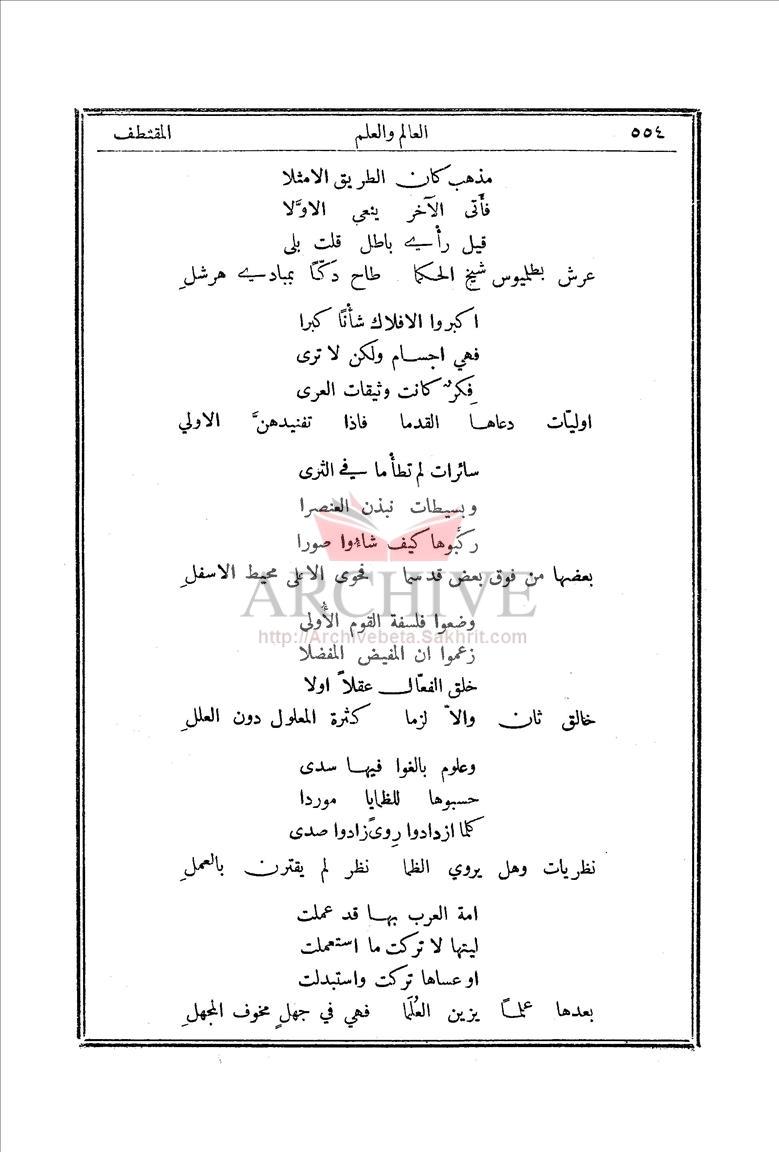 ٥٥٤ العالم والعلم المقتطف
مذهب كان الطريق الامثلا
فأتى الآخر ينعي الاوّلا
قيل رأي باطل قلت بلى
عرش بطلميوس شيخ الحكما طاح دكّاً بمبادي هرشلِ
اكبروا الافلاك شأناً كبرا
فهي اجسام ولكن لا ترى
فِكرٌ كانت وثيقات العرى
اوليّات دعاها القدما فاذا تفنيدهنَّ الاولي
سائرات لم تطأ ما في الثرى
وبسيطات نبذن العنصرا
ركّبوها كيف شاءوا صورا
بعضها من فوق بعض قد سما فحوى الاعلى محيط الاسفلِ
ARCHIVE
وضعوا فلسفة القوم الأُولى
http://Archivebeta.Sakhrit.com
زعموا ان المفيض المفضلا
خلق الفعّال عقلاً اولا
خالق ثان والاّ لزما كثرة المعلول دون العللِ
وعلوم بالغوا فيها سدى
حسبوها للظمايا موردا
كلما ازدادوا رِوىً زادوا صدى
نظريات وهل يروي الظما نظر لم يقترن بالعملِ
امة العرب بها قد عملت
ليتها لا تركت ما استعملت
او عساها تركت واستبدلت
بعدها علماً يزين العُلَما فهي في جهلٍ مخوف المجهلِ